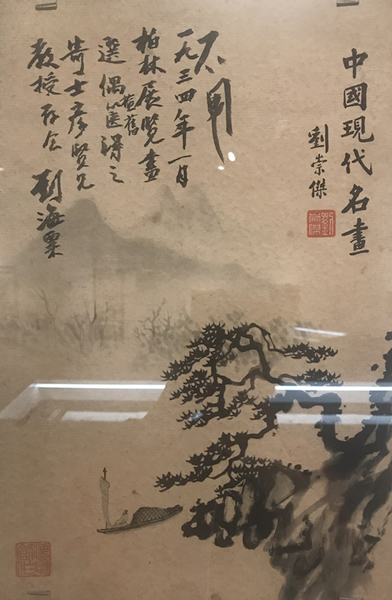 中國現代名畫
劉崇傑
一九三四年一月
柏林展覽畫
選偶篋得之
寄士彥賢兄
教授存念 劉海粟